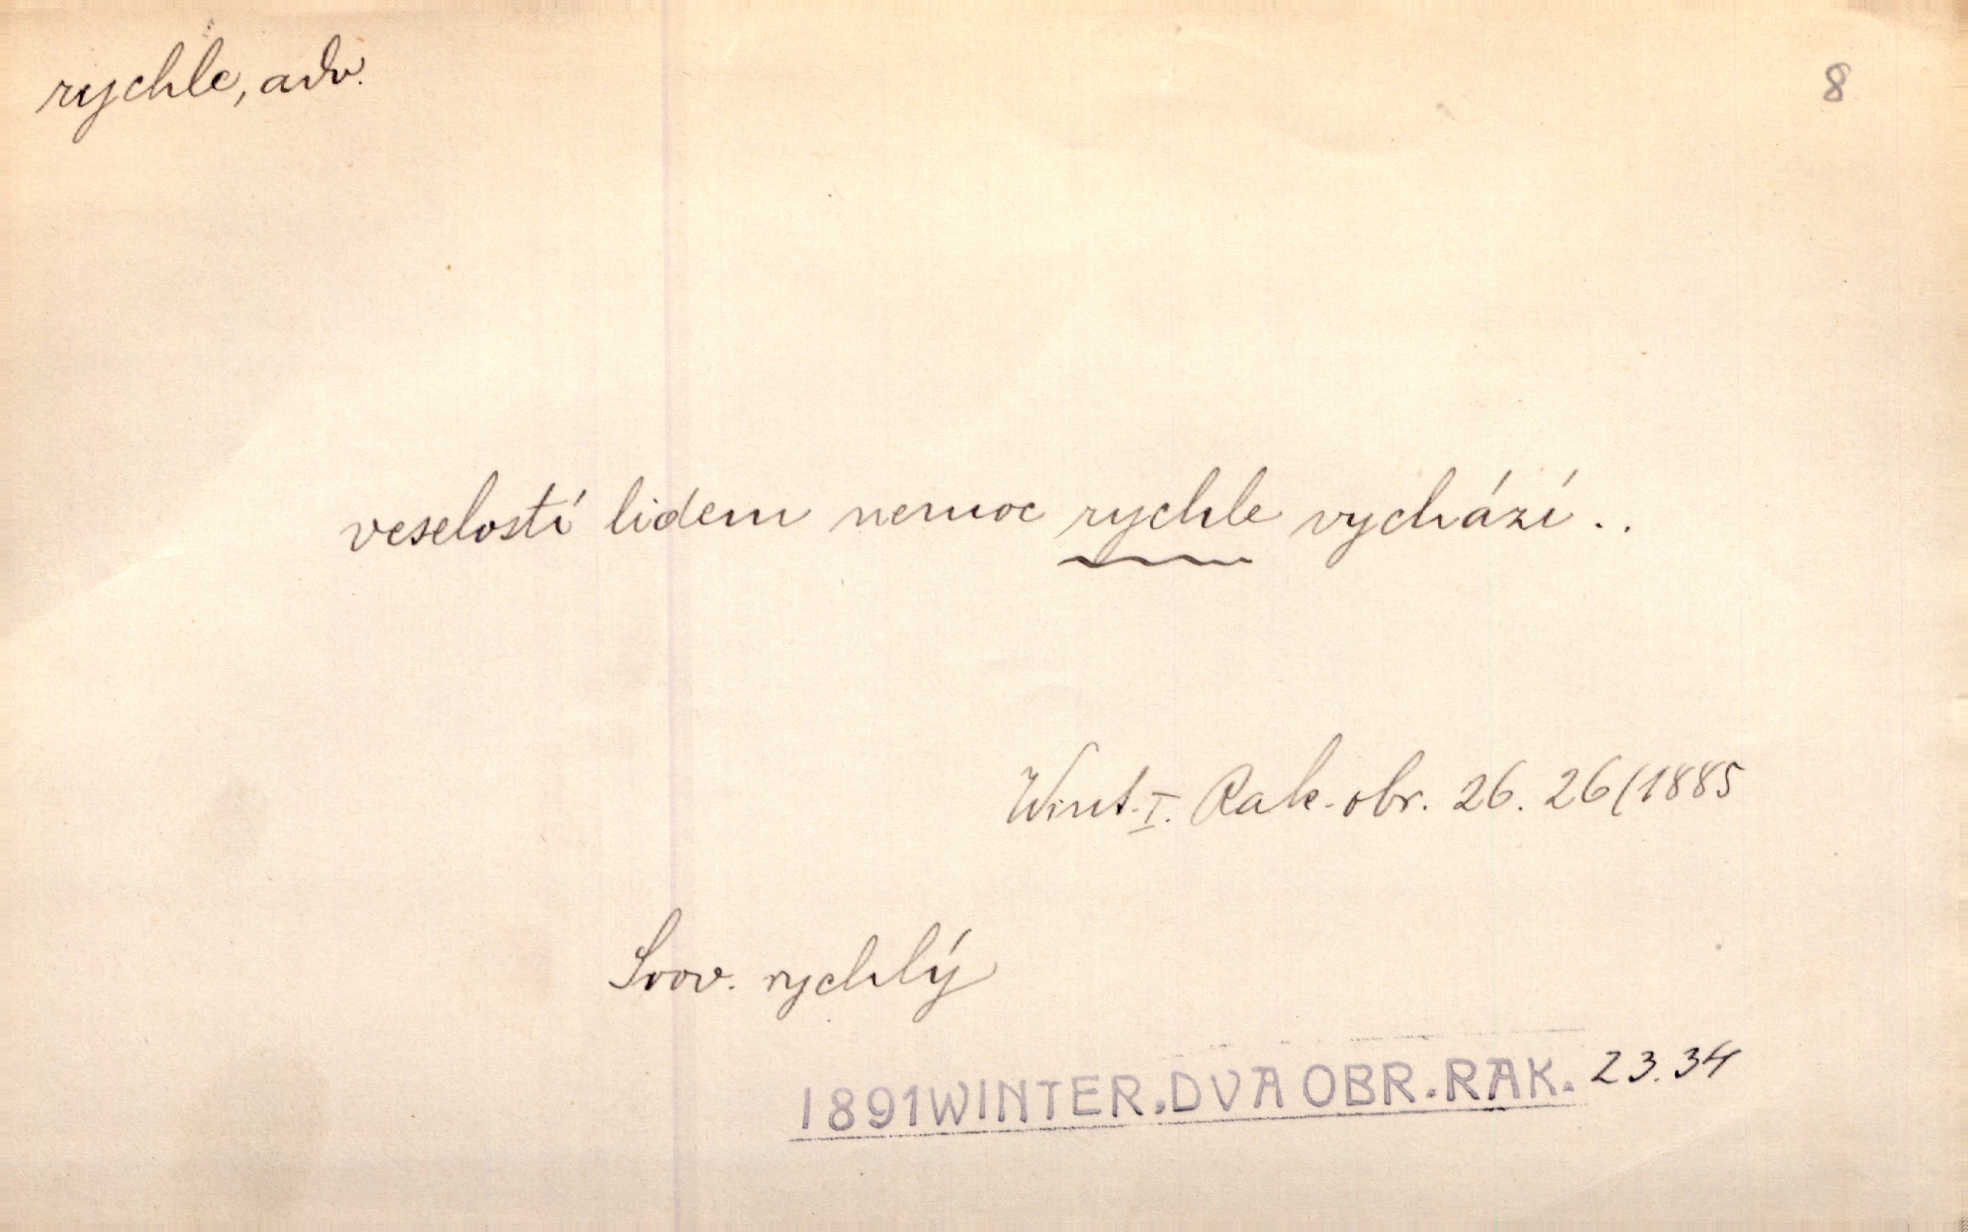 rychle, adv.
8
veselostí lidem nemoc rychle vychází..
Wint. I. Rak. obr. 26. 26/1885
Srov. rychlý
1891 WINTER. DVA OBR. RAK. 23.34